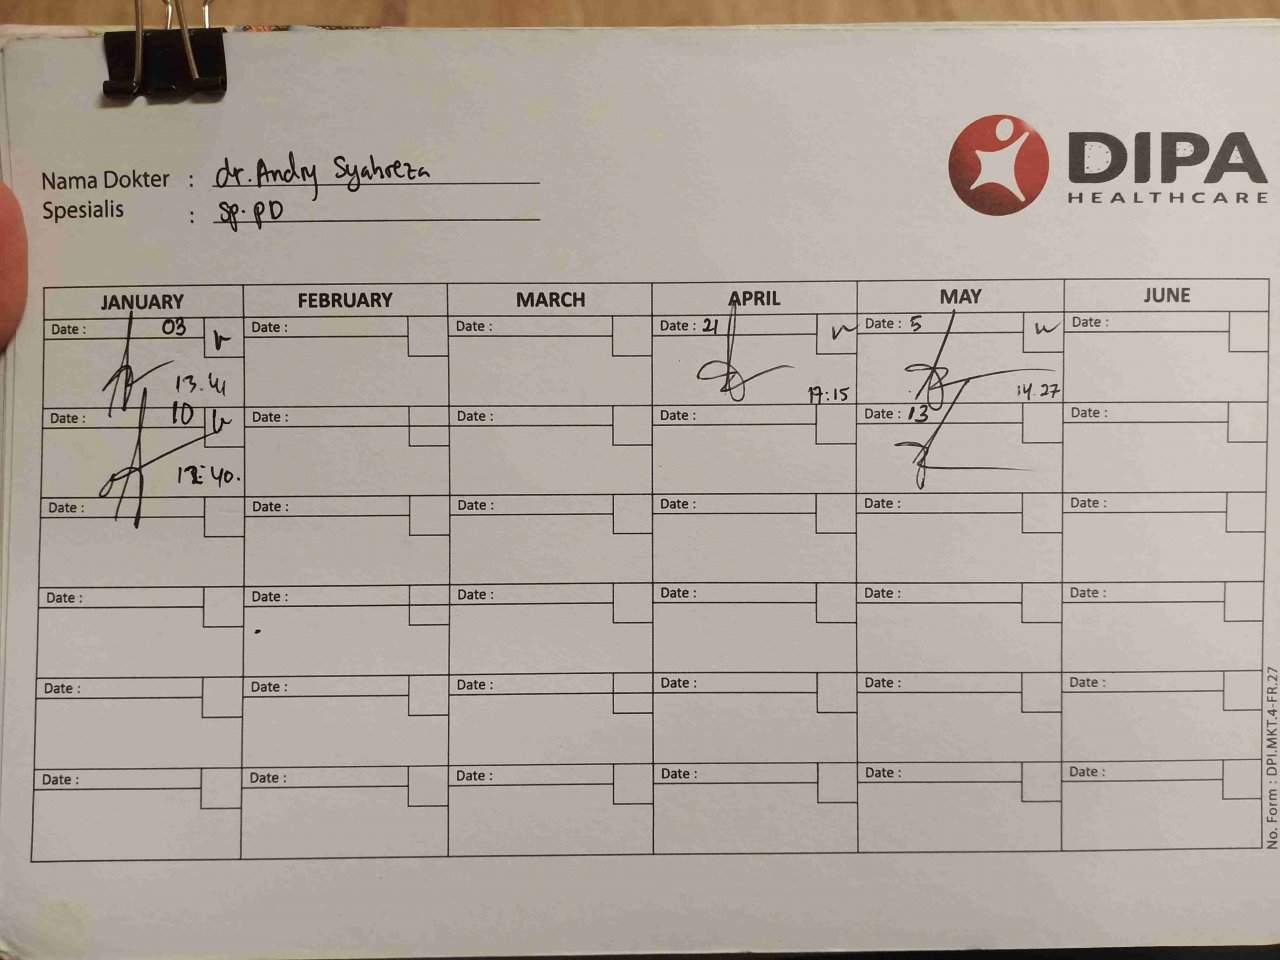 DIPA
HEALTHCARE
Nama Dokter : dr. Andry Syahreza
Spesialis : Sp.PD
JANUARY FEBRUARY MARCH APRIL MAY JUNE
Date : 03 Date : Date : Date : 21 Date : 5 Date :
13.41 17:15 14.27
Date : 10 Date : Date : Date : Date : 13 Date :
40.
Date : Date : Date : Date : Date : Date :
Date : Date : Date : Date : Date : Date :
Date : Date : Date : Date : Date : Date :
Date : Date : Date : Date : Date : Date :
No. Form : DPI.MKT.4-FR.27